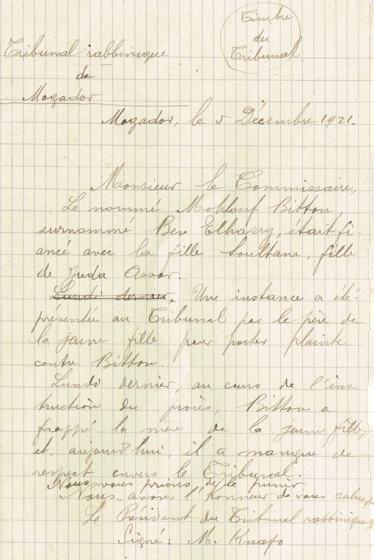 Tribunal rabbinique
de
Mogador
Timbre
du
Tribunal
Mogador, le 5 Décembre 1921.
Monsieur le Commissaire,
Le nommé Mahlouf Bitton,
surnommé Ben Elhasry, était fi
ancé avec la fille Soultana, fille
de Juda Assor.
Lundi dernier. Une instance a été
présentée au Tribunal par le père de
la jeune fille pour porter plainte
contre Bitton.
Lundi dernier, au cours de l'ins
truction du procès, Bitton a
frappé la mère de la jeune fille,
et, aujourd'hui, il a manqué de
respect envers le Tribunal.
Nous vous prions de le punir
Nous avons l'honneur de vous
Le Président du Tribunal rabbinique
Signé: M. Knafo